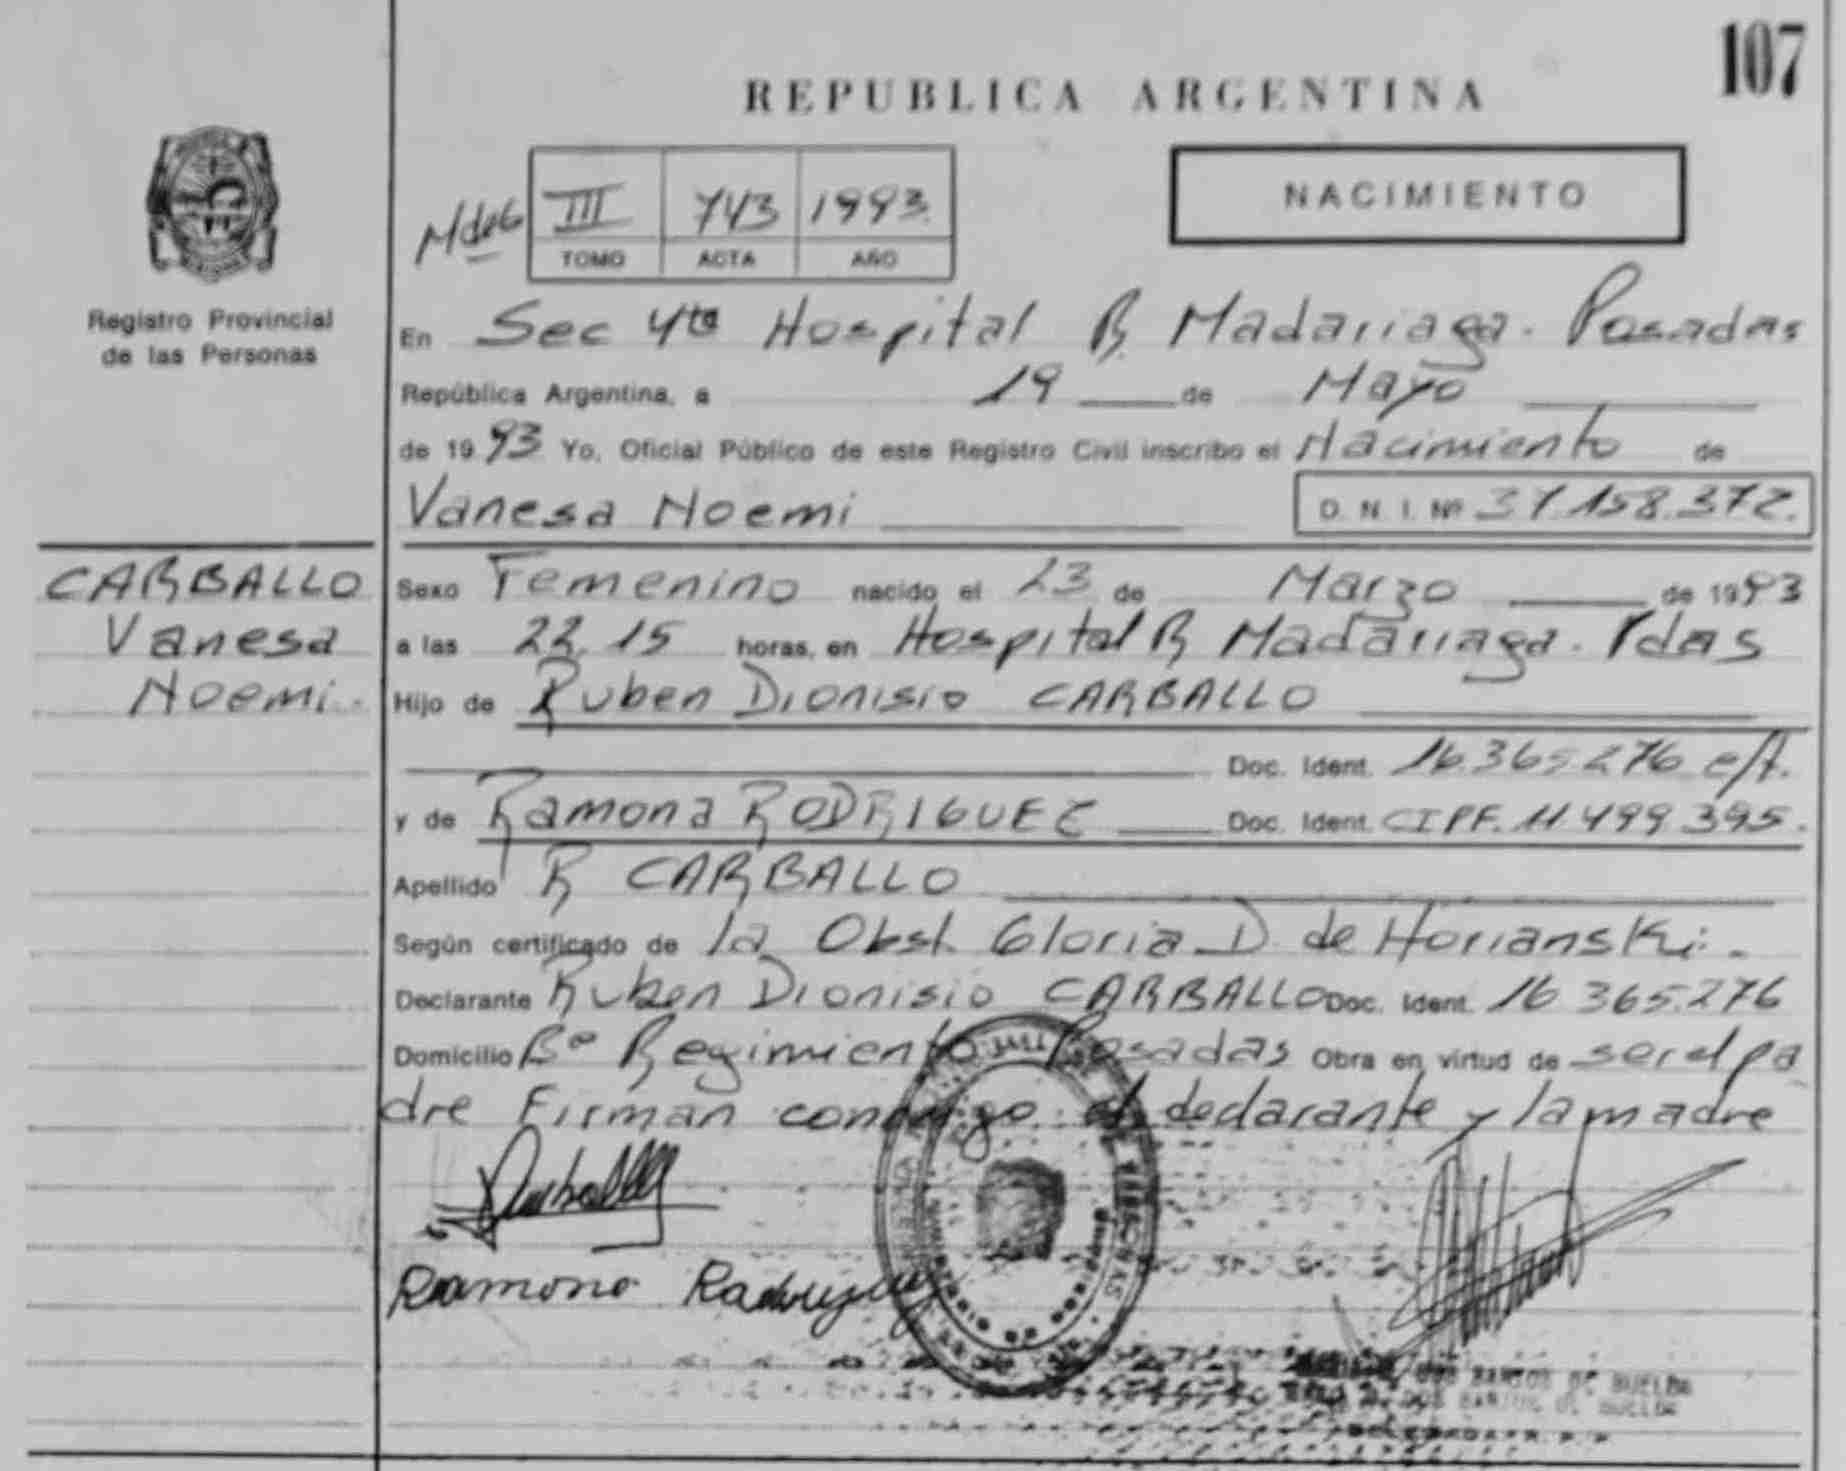 107
REPUBLICA ARGENTINA
NACIMIENTO
III 743 1993
TOMO ACTA AÑO
Registro Provincial
de las Personas
En Sec 4ta Hospital R Madariaga. Posadas
República Argentina, a 19 de Mayo
de 1993 Yo, Oficial Público de este Registro Civil inscribo el Nacimiento de
Vanesa Noemi D. N. I. Nº 37.158.372.
CARBALLO
Vanesa
Noemi.
Sexo Femenino nacido el 23 de Marzo de 1993
a las 22,15 horas, en Hospital R Madariaga. Pdas
Hijo de Ruben Dionisio CARBALLO
Doc. Ident. 16.365.276 e/t.
y de Ramona RODRIGUEZ Doc. Ident. CIPF. 11.499.395.
Apellido R CARBALLO
Según certificado de la Obst. Gloria D. de Horianski.
Declarante Ruben Dionisio CARBALLO Doc. Ident. 16 365.276
Domicilio Bº Regimiento Posadas Obra en virtud de ser el pa
dre Firman conmigo el declarante y la madre
Ramona Rodriguez
DOS SANTOS DE BUELDA